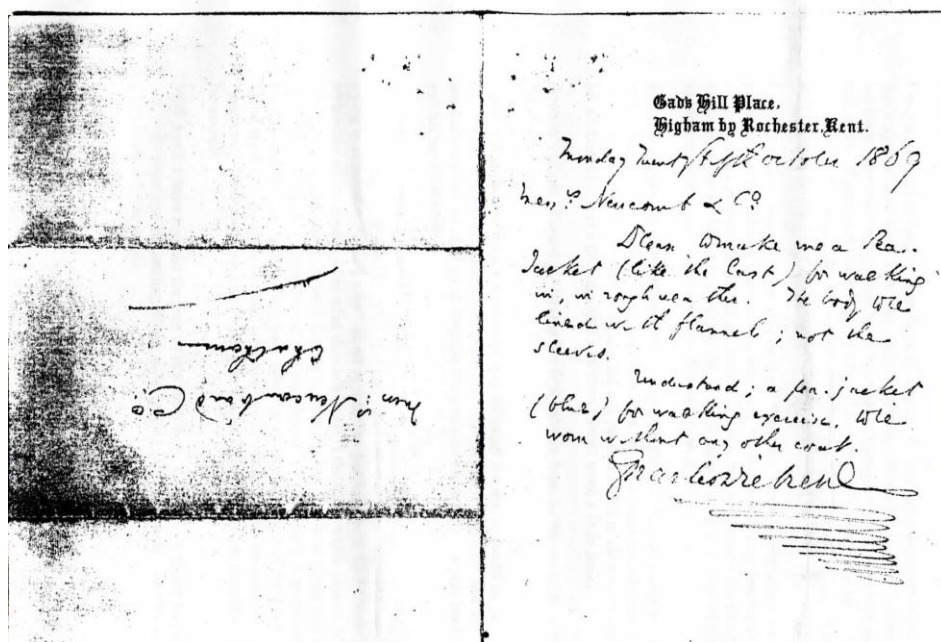 Gads Hill Place,
Higham by Rochester, Kent.
Monday Twenty fifth October 1869
Mess.rs Newcomb & Co.
Please to make me a Pea-
Jacket (like the last) for walking
in, in rough weather. The body to be
lined with flannel; not the
sleeves.
Understand; a pea-jacket
(blue) for walking exercise, to be
worn without any other coat.
Charles Dickens
Mess.rs Newcomb and Co.
Chatham